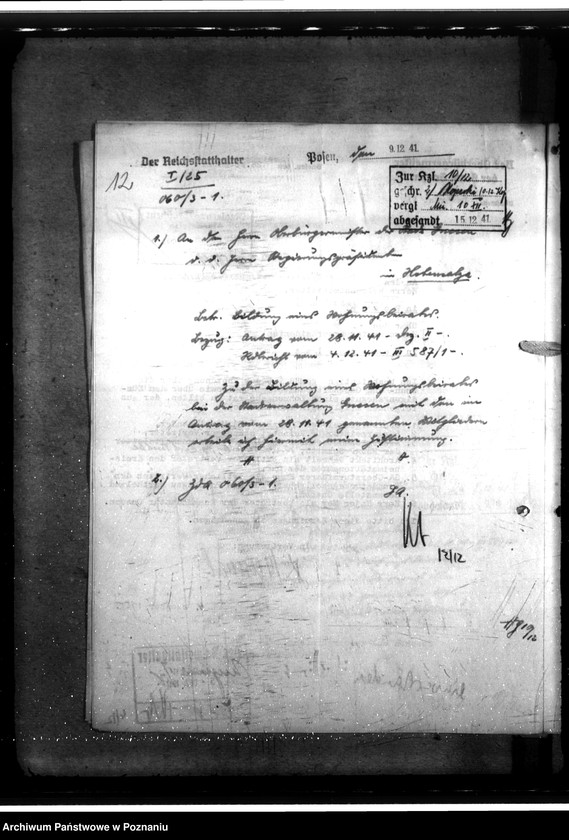 12
Der Reichsstatthalter
Posen, den 9.12.41.
I/25
060/3-1.
Zur Kzl. 10/12
geschr.
vergl. 10. XII.
abgesandt 15.12.41
1.) An den Herrn Oberbürgermeister der Stadt Gnesen
d. d. Herrn Regierungspräsident
in Hohensalza.
Betr. Bildung eines Wohnungsbeirates.
Bezug: Antrag vom 28.11.41 - Dez. II -.
Randbericht vom 4.12.41 - III 587/1 -.
Zu der Bildung eines Wohnungsbeirates
bei der Stadtverwaltung Gnesen mit den im
Antrag vom 28.11.41 genannten Mitgliedern
erteile ich hiermit meine Zustimmung.
2.) ZdA 060/3-1.
JA.
12/12
Archiwum Państwowe w Poznaniu